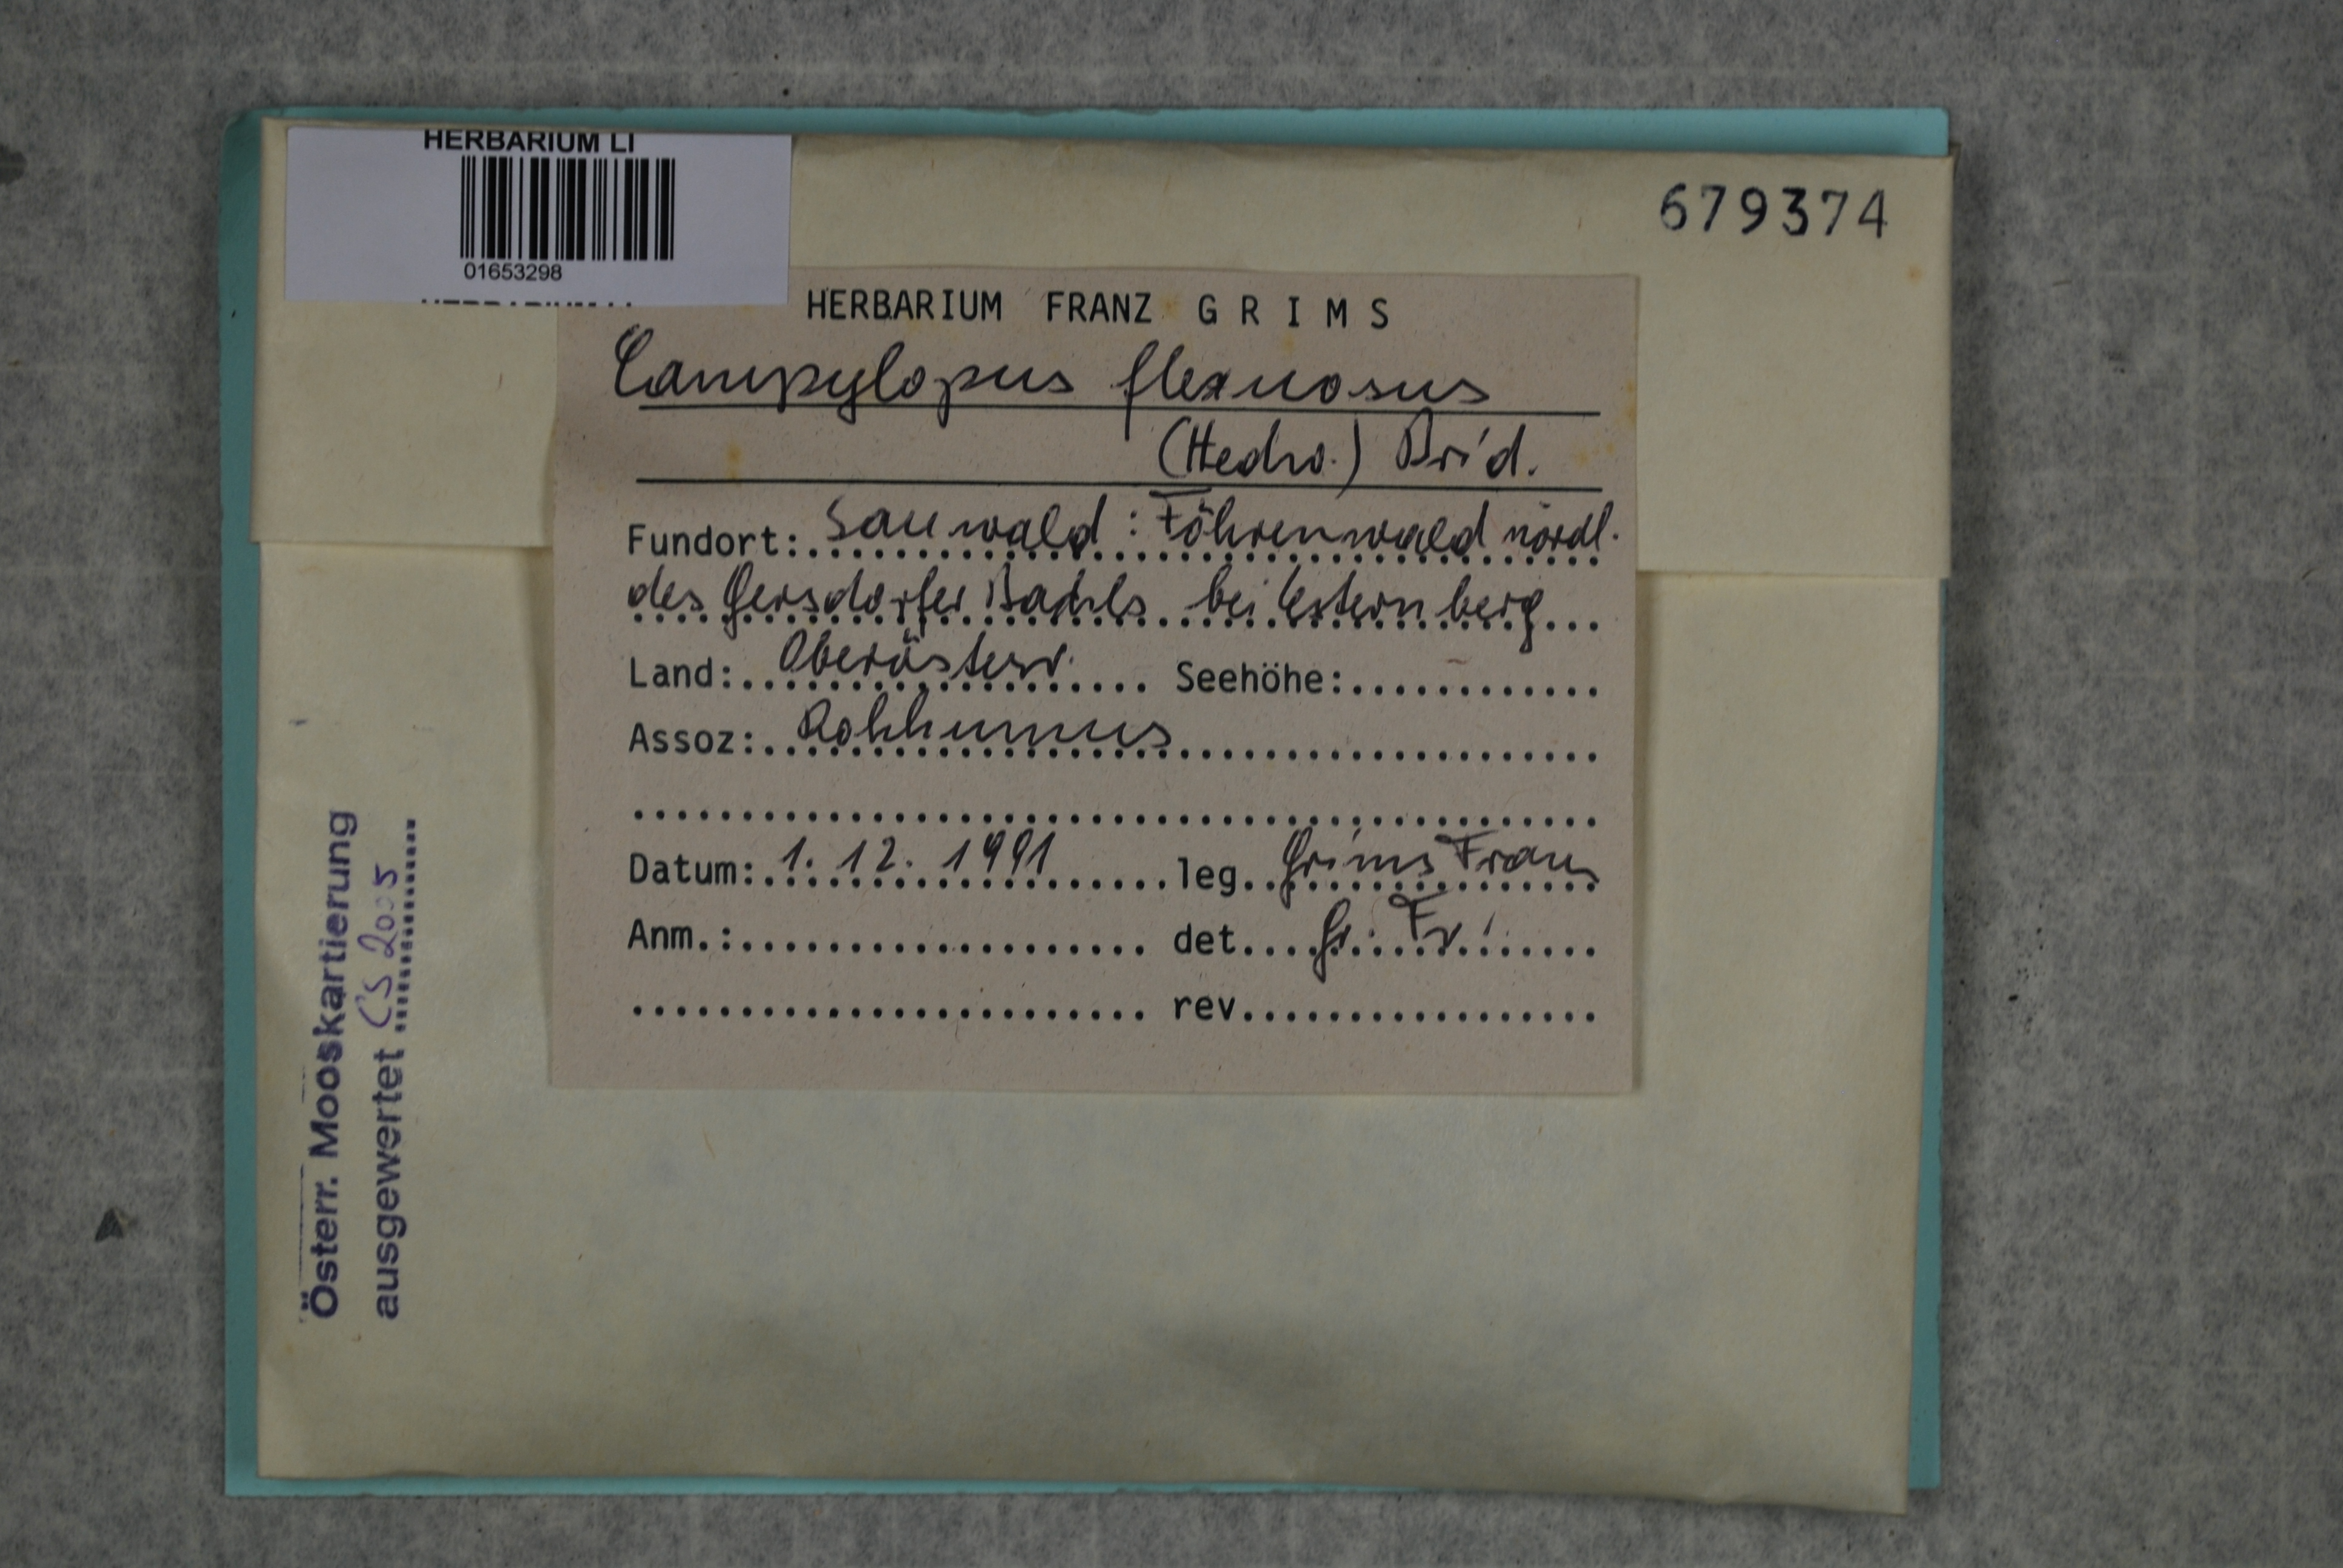 HERBARIUM LI
01653298
679374
HERBARIUM FRANZ GRIMS
Campylopus flexuosus
(Hedw.) Brid.
Fundort: Sauwald: Föhrenwald nördl.
des Gersdorfer Bachls bei Esternberg
Land: Oberösterr. Seehöhe:
Assoz: Rohhumus
Datum: 1.12.1991 leg. Grims Franz
Anm.: det. Gr. Fr.
rev.
Österr. Mooskartierung
ausgewertet CS 2005